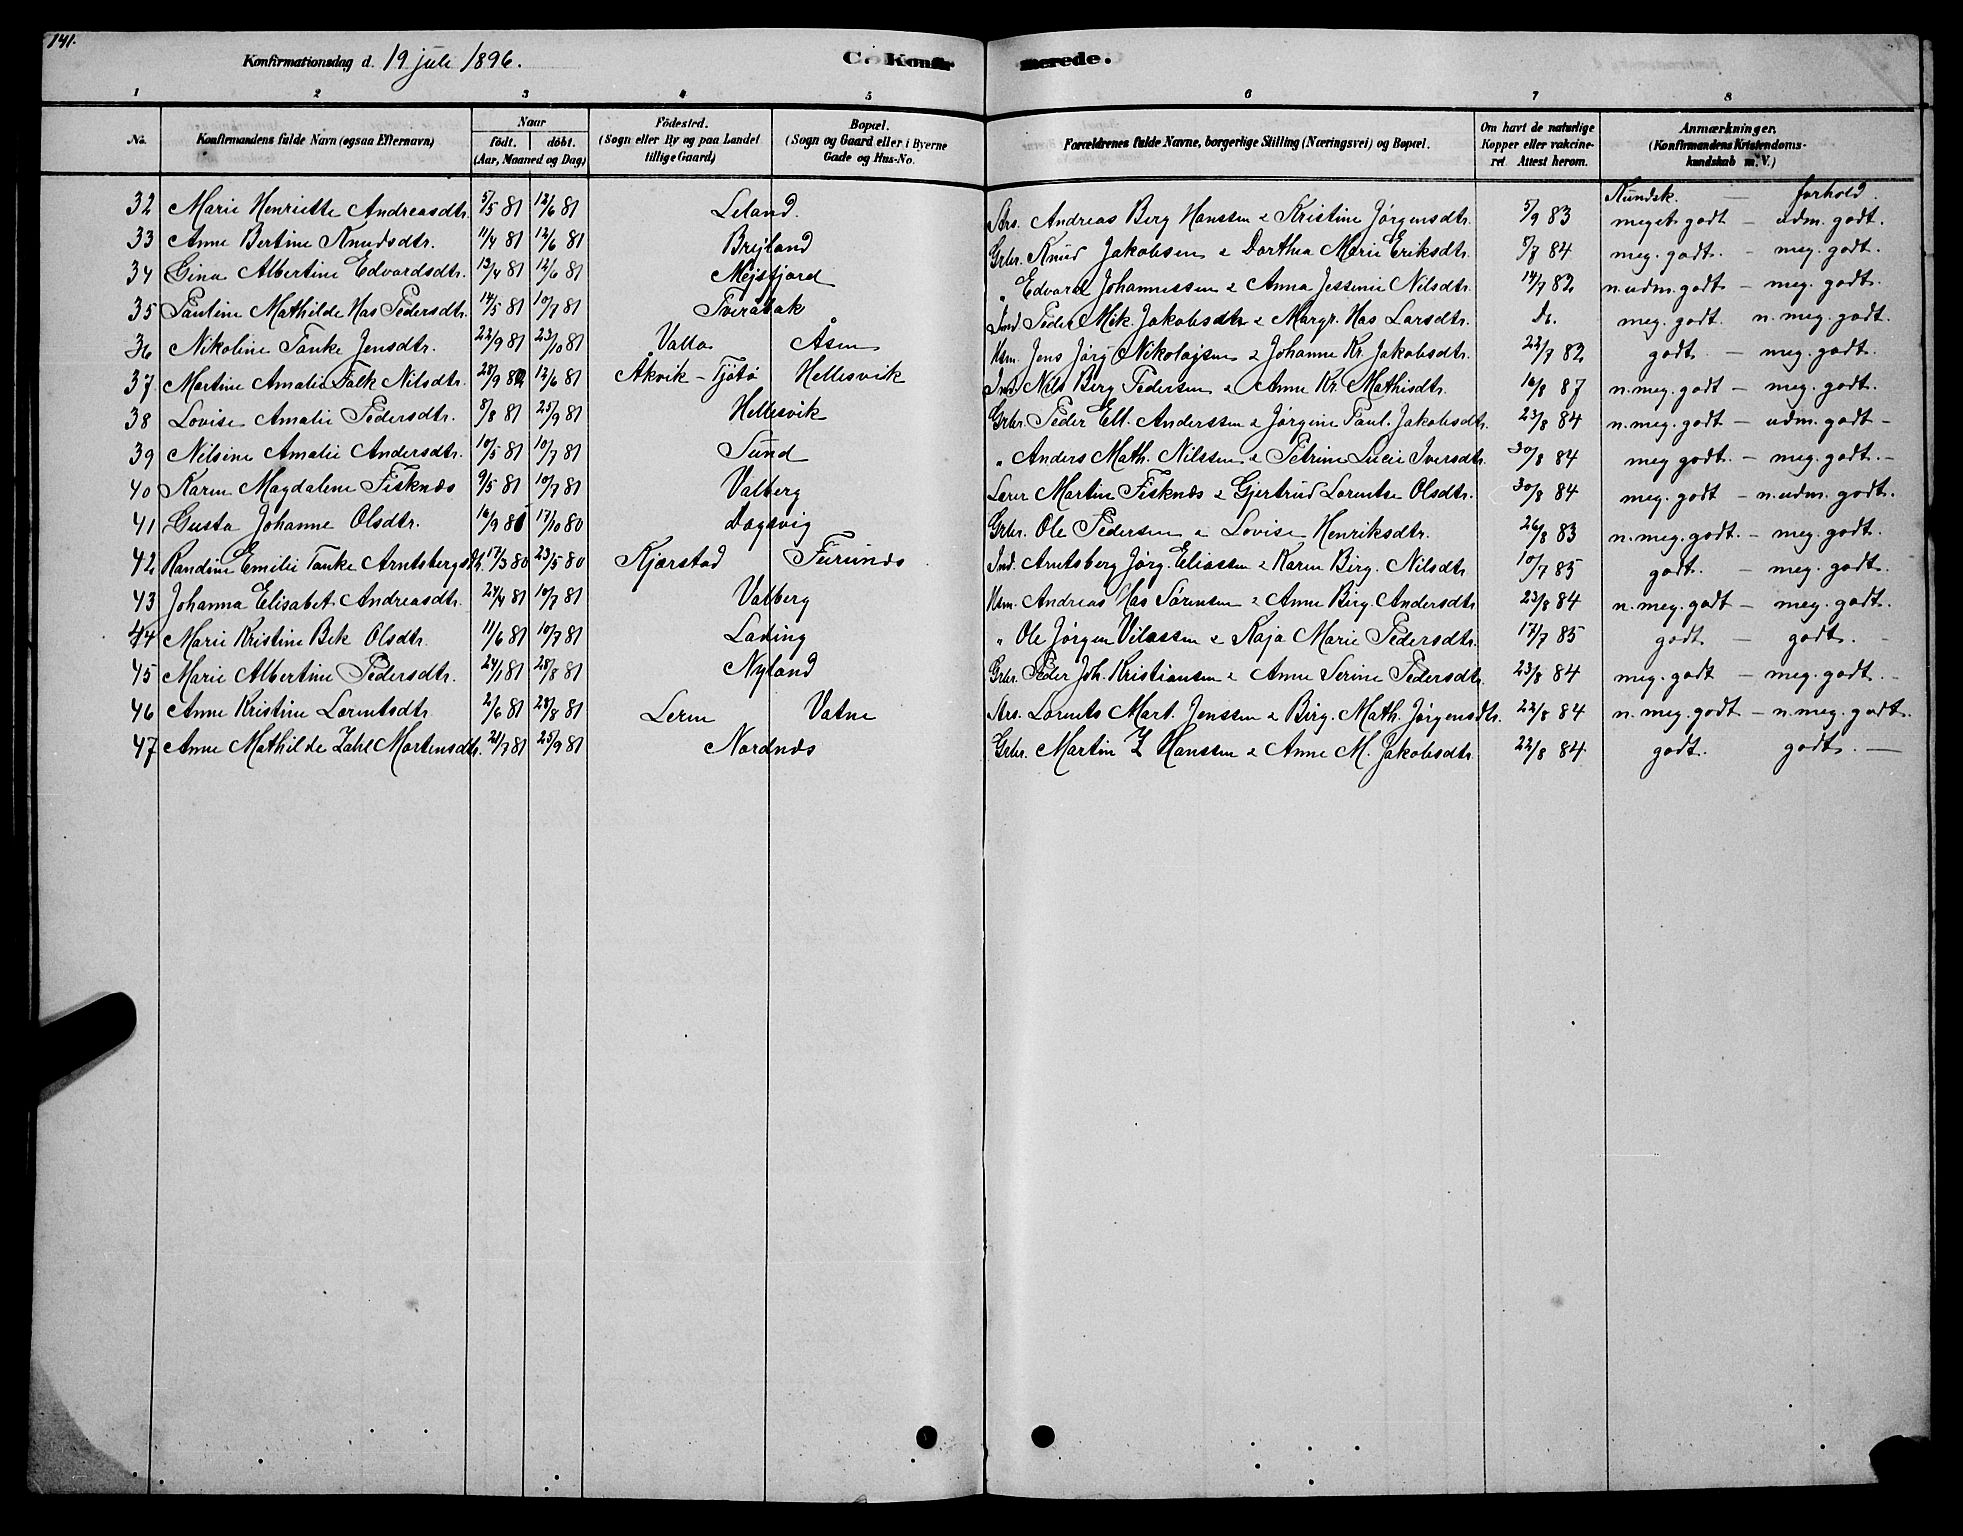 141.
Konfirmationsdag d. 19 juli 1896. C. Konfirmerede.
1 2 3 4 5 6 7 8
No. Konfirmandens fulde Navn (ogsaa Efternavn) Naar født. døbt. (Aar, Maaned og Dag) Fødested. (Sogn eller By og paa Landet tillige Gaard) Bopæl. (Sogn og Gaard eller i Byerne Gade og Hus-No. Forældrenes fulde Navne, borgerlige Stilling (Næringsvei) og Bopæl. Om havt de naturlige Kopper eller vakcineret. Attest herom. Anmærkninger. (Konfirmandens Kristendomskundskab m. V.)
Kundsk. — forhold.
32 Marie Henriette Andreasdtr. 5/5 81 12/6 81 Leland. Strs. Andreas Berg Hanssen & Kristine Jørgensdtr. 5/9 83 meget godt – udm. godt.
33 Anne Bertine Knudsdtr. 11/4 81 12/6 81 Brejland Grbr. Knud Jakobsen & Dorthea Marie Eriksdtr. 5/7 84 meg. godt. – meg. godt.
34 Gina Albertine Edvardsdtr. 13/4 81 12/6 81 Mejsfjord " Edvard Johannessen & Anna Jessinie Nilsdtr. 14/7 82 n. udm. godt – meg. godt.
35 Pauline Mathilde Has Pedersdtr. 14/5 81 10/7 81 Tveråbak Ind. Peder Mik. Jakobsdtr & Margr. Has Larsdtr. do. meg. godt. n. meg. godt.
36 Nikoline Tanke Jensdtr. 22/9 81 23/10 81 Valla Åsen Hsm. Jens Jørg Nikolajsen & Johanne Kr. Jakobsdtr. 22/7 82 godt. – meg. godt.
37 Martine Amalie Falk Nilsdtr. 28/9 82 12/6 81 Åkvik – Tjøtø Hellesvik Ind. Nils Berg Pedersen & Anne Kr. Mathisdtr. 16/8 87 n. meg. godt – meg. godt.
38 Lovise Amalie Pedersdtr. 8/8 81 25/9 81 Hellesvik Grbr. Peder Ell. Anderssen & Jørgine Paul. Jakobsdtr. 23/8 84 n. meg. godt – udm. godt –
39 Nilsine Amalie Andersdtr. 10/5 81 10/7 81 Sund " Anders Math. Nilssen & Petrine Lucie Iversdtr. 30/8 84 meg godt. – meg. godt. –
40 Karen Magdalene Fisknes 9/5 81 10/7 81 Valberg Lærer Martin Fisknes & Gjertrud Lorentse Olsdtr. 30/8 84 meg. godt – n. udm. godt.
41 Gusta Johanne Olsdtr. 16/9 80 17/10 80 Dagsvig Grbr. Ole Pedersen & Lovise Henriksdtr. 26/8 83 n. meg. godt. – meg. godt.
42 Randine Emilie Tanke Arntsbergsdtr. 17/3 80 23/5 80 Kjærstad Ind. Arntsberg Jørg. Eliassen & Karen Birg. Nilsdtr 10/7 85 godt. – meg. godt.
43 Johanna Elisabet Andreasdtr. 24/4 81 10/7 81 Valberg Hsm. Andreas Has Sørensen & Anne Birg. Andersdtr 23/8 84 n. meg. godt – meg. godt.
44 Marie Kristine Bek Olsdtr. 11/6 81 10/7 81 Lading " Ole Jørgen Vilassen & Kaja Marie Pedersdtr. 17/7 85 godt – godt. –
45 Marie Albertine Pedersdtr. 24/1 81 28/8 81 Nyland Grbr. Peder Joh. Kristiansen & Anne Serine Pedersdtr. 23/8 84 meg. godt – meg. godt. –
46 Anne Kristine Lorentsdtr. 2/6 81 28/8 81 Leren Vatne Strs. Lorents Mart. Jenssen & Birg. Math. Jørgensdtr. 22/8 84 n. meg. godt – n. meg. godt.
47 Anne Mathilde Zahl Martensdtr. 21/7 81 25/9 81 Nordnes Grbr. Martin Z Hanssen & Anne M. Jakobsdtr. 22/8 84 godt. godt. —